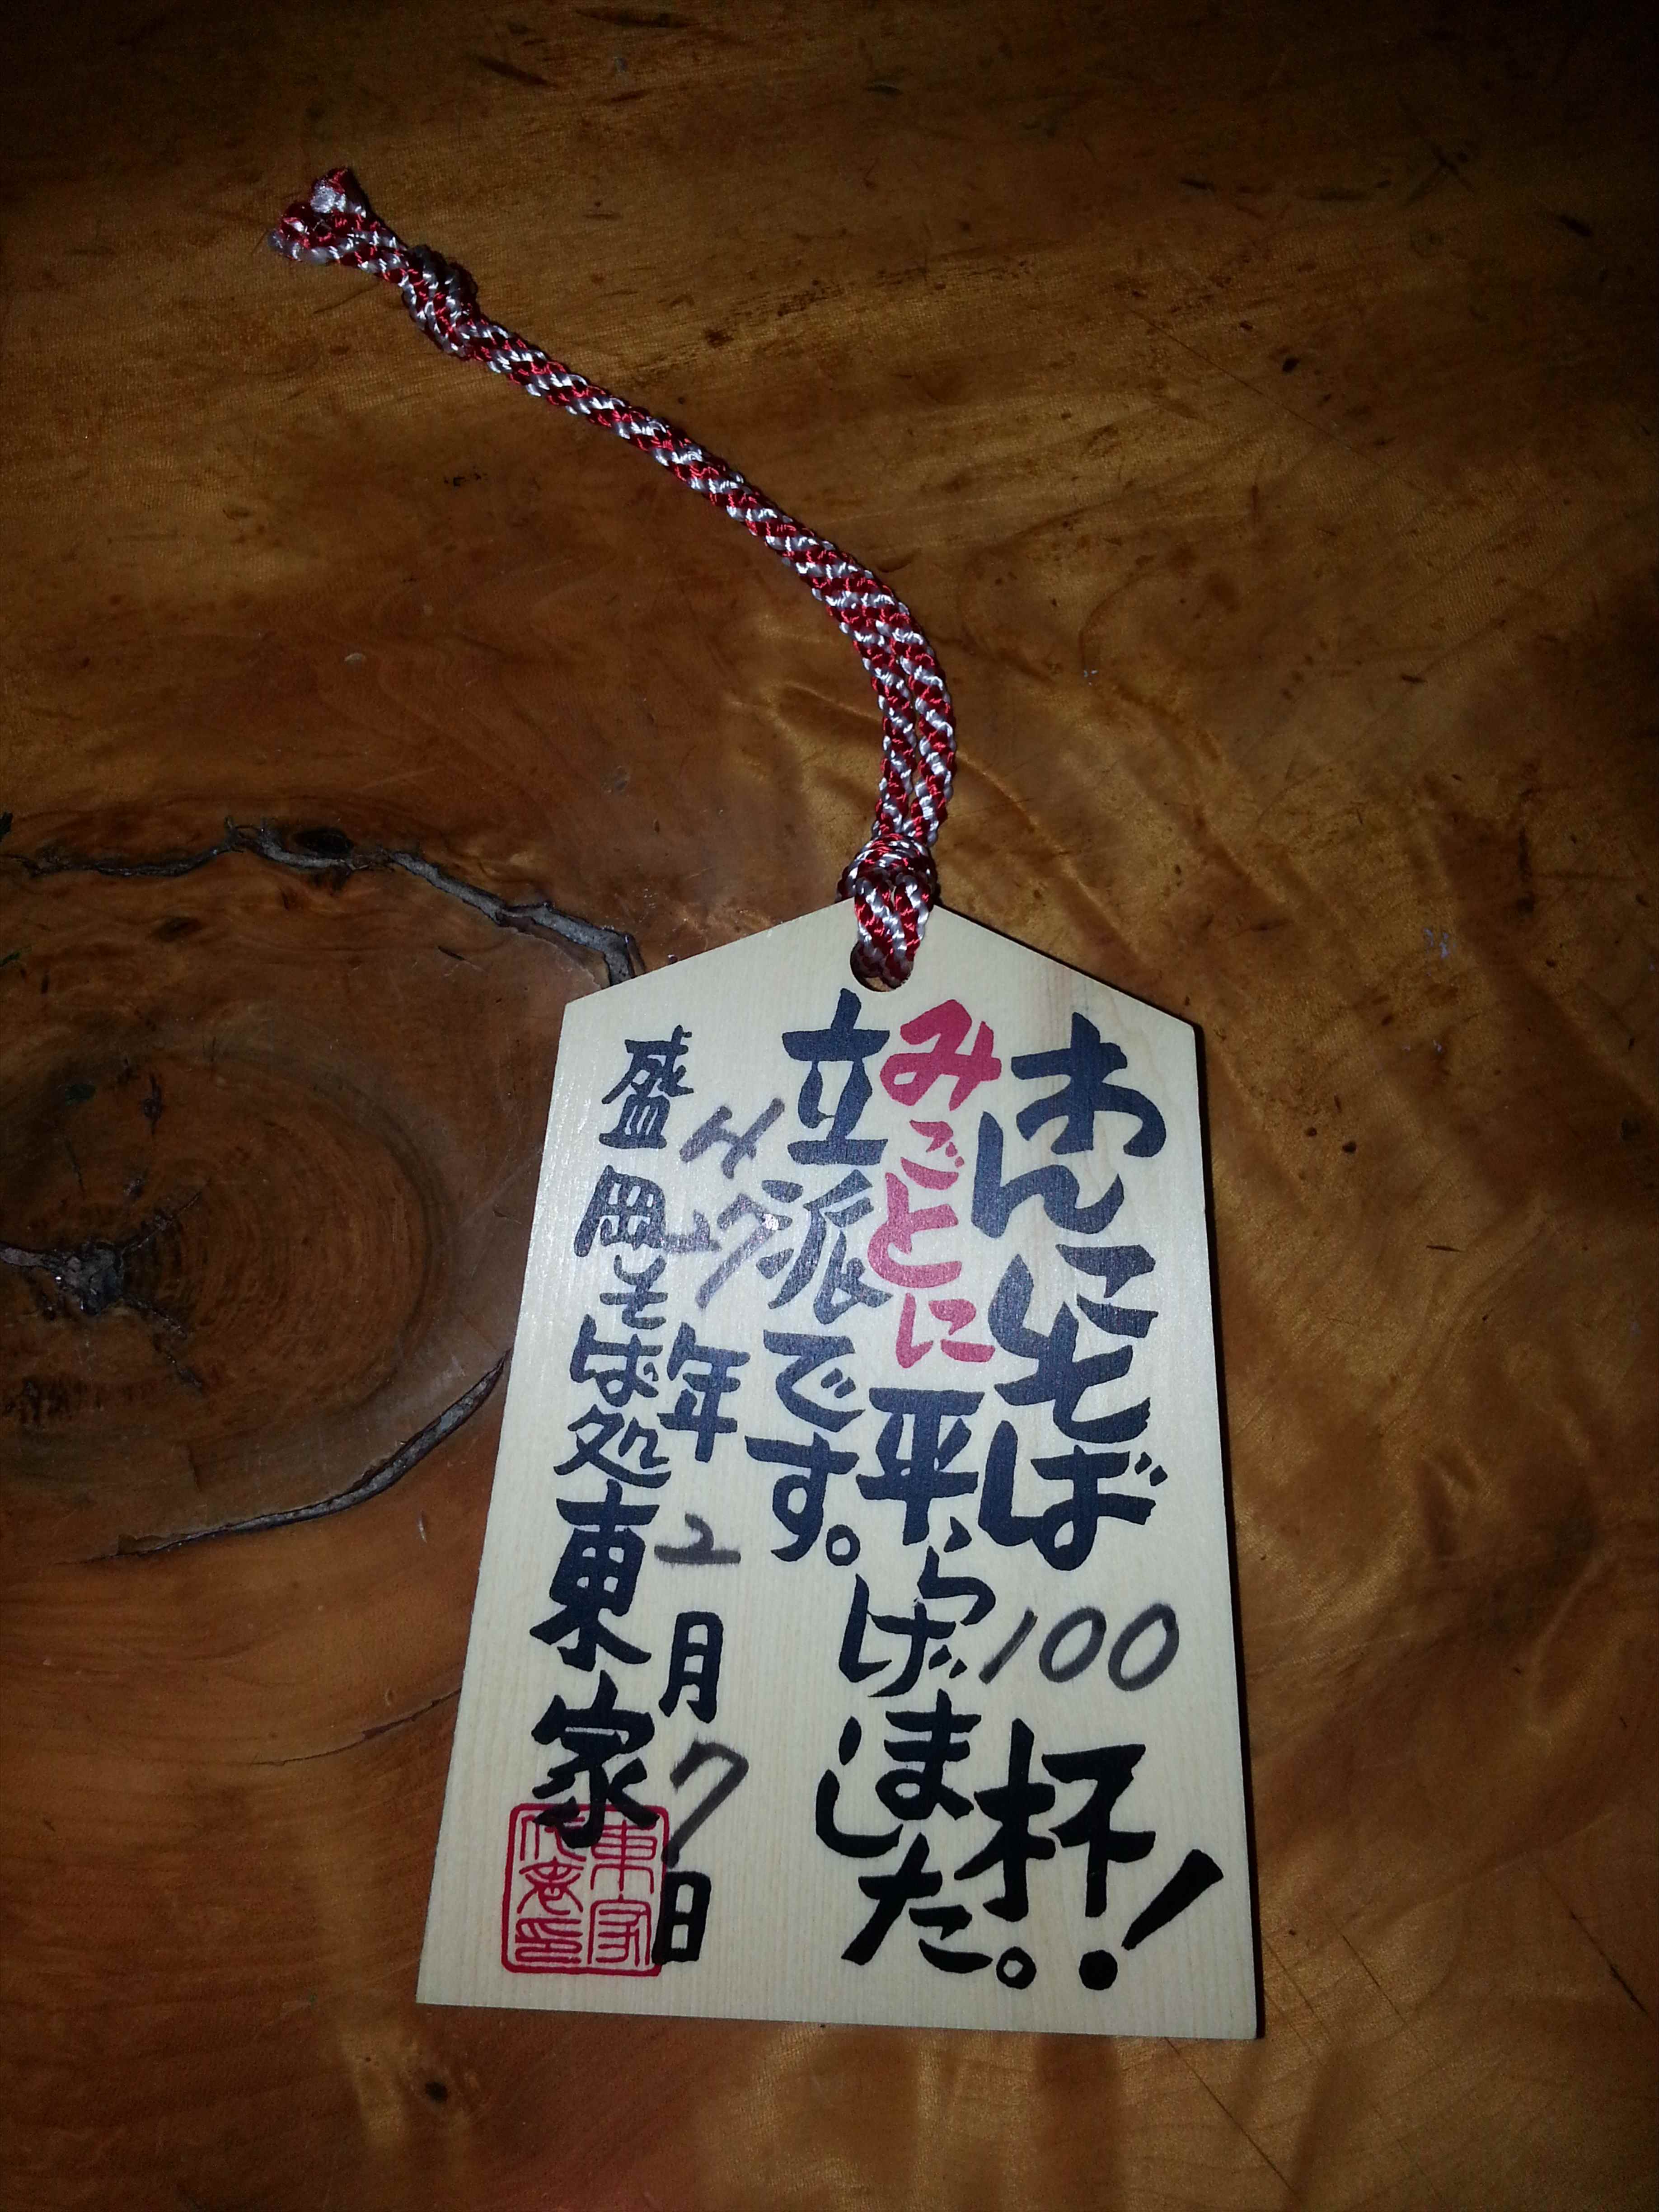 わんこそば 100 杯!
みごとに 平らげました。
立派です。
H27年 2月7日
盛岡そば処 東家
東家
代表印